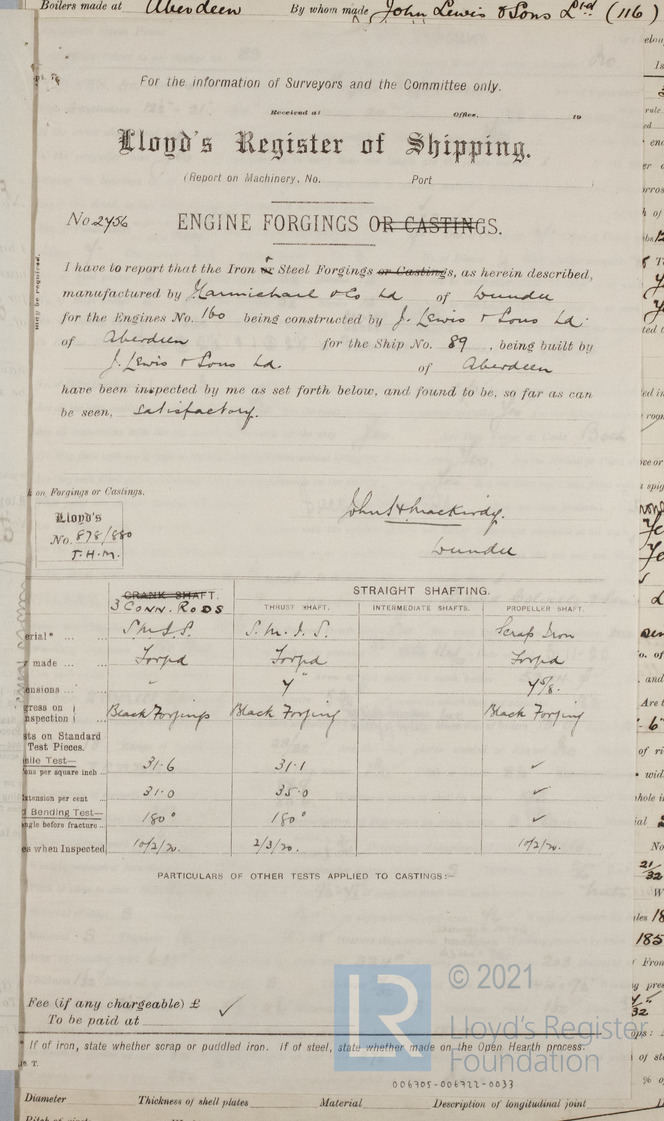 Boilers made at Aberdeen By whom made John Lewis & Sons Ltd (116)
For the information of Surveyors and the Committee only.
Received at Office, 19
Lloyd's Register of Shipping.
(Report on Machinery, No. Port
No 2456 ENGINE FORGINGS OR CASTINGS.
I have to report that the Iron or Steel Forgings or Castings, as herein described,
manufactured by & Co Ld of Dundee
for the Engines No. 160 being constructed by J. Lewis & Sons Ld.
of Aberdeen for the Ship No. 89, being built by
J. Lewis & Sons Ld. of Aberdeen
have been inspected by me as set forth below, and found to be, so far as can
be seen, satisfactory.
on Forgings or Castings.
Lloyd's
No. 878/880
T.H.M.
Dundee
CRANK SHAFT. STRAIGHT SHAFTING.
3 CONN. RODS THRUST SHAFT. INTERMEDIATE SHAFTS. PROPELLER SHAFT.
erial* ... S.M.I.S. S.M.I.S. Scrap Iron
made ... Forged Forged Forged
ensions ... " 7" 7 5/8.
gress on
nspection Black Forgings Black Forging Black Forging
sts on Standard
Test Pieces.
sile Test—
ons per square inch 31.6 31.1 ✓
xtension per cent 31.0 35.0 ✓
Bending Test—
ngle before fracture 180° 180° ✓
es when Inspected 10/2/20. 2/3/20. 10/2/20.
PARTICULARS OF OTHER TESTS APPLIED TO CASTINGS:—
Fee (if any chargeable) £ ✓
To be paid at
* If of iron, state whether scrap or puddled iron. If of steel, state whether made on the Open Hearth process.
LR © 2021
Lloyd's Register
Foundation
006705-006722-0033
Diameter Thickness of shell plates Material Description of longitudinal joint